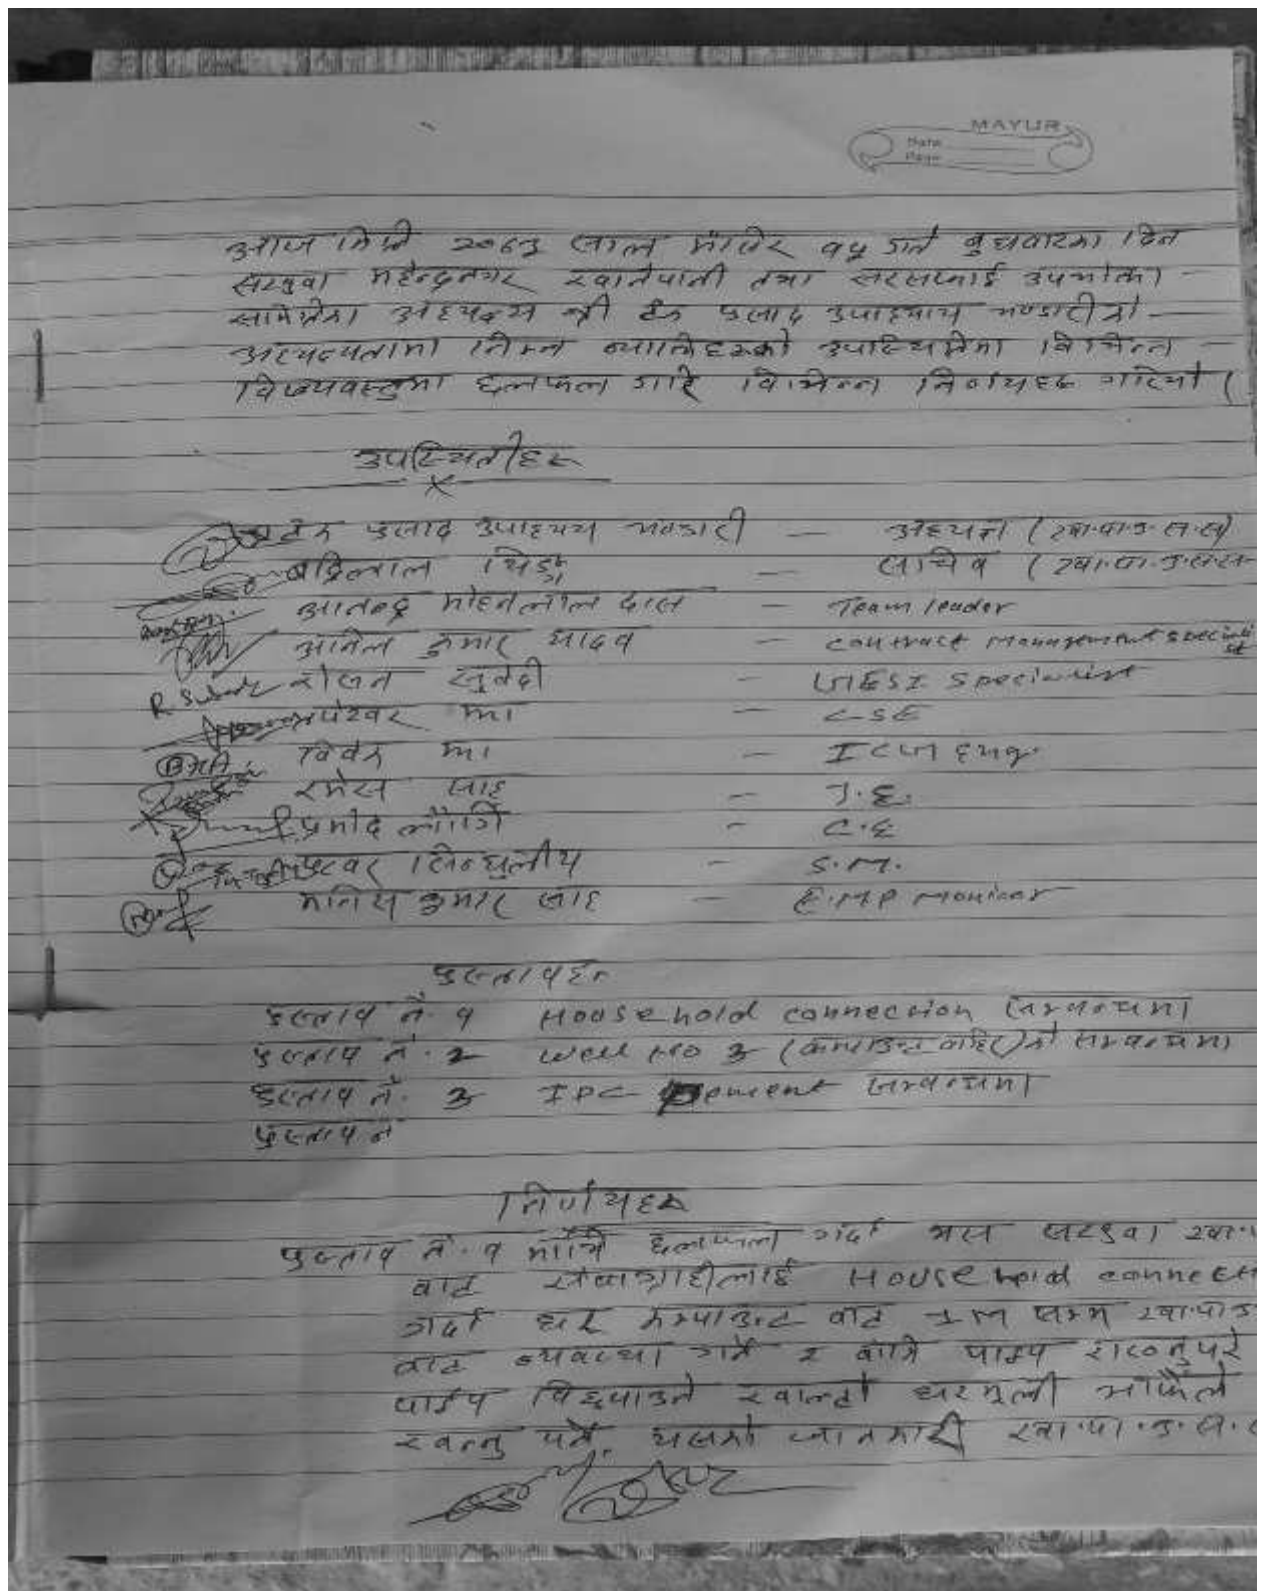 MAYUR
Date
Page
आज मिति साल मंसिर १५ गते बुधवारका दिन
महेन्द्रनगर खानेपानी तथा सरसफाई उपभोक्ता
समितिका अध्यक्ष श्री प्रसाद उपाध्याय भण्डारीको
अध्यक्षतामा निम्न व्यक्तिहरुको उपस्थितिमा विभिन्न
विषयवस्तुमा छलफल गरि विभिन्न निर्णयहरु गरियो ।
उपस्थितीहरु
प्रसाद उपाध्यय भण्डारी — अध्यक्ष (खा.पा.उ.स.स)
— सचिव (खा.पा.उ.स.स
आनन्द मोहनलाल दास — Team leader
अनिल कुमार यादव — contract Management speciali
st
R Subedi रोशन सुवेदी — GESI specialist
झा — CSE
विवेक झा — ICG Eng.
रमेस साह — J.E.
प्रमोद — C.E
— S.M.
मनिष कुमार साह — E.M.P Monitor
प्रस्तावहरु
प्रस्ताव नं. १ Household connection सम्बन्धमा
प्रस्ताव नं. २ Well No 3 (कम्पाउन्ड बाहिर) को सम्बन्धमा
प्रस्ताव नं. ३ IPC Pement सम्बन्धमा
प्रस्ताव नं
निर्णयहरु
प्रस्ताव नं. १ माथि छलफल गर्दा यस खा.
बाट सेवाग्राहीलाई House hold connect
गर्दा घर कम्पाउन्ड बाट सम्म खा.पा.उ
बाट व्यवस्था गर्ने र बाँकि पाइप राख्नुपरे
पाईप विछ्याउने खाल्टो घरमूली आफैले
खन्नु पर्ने, यसको जानकारी खा.पा.उ.स.